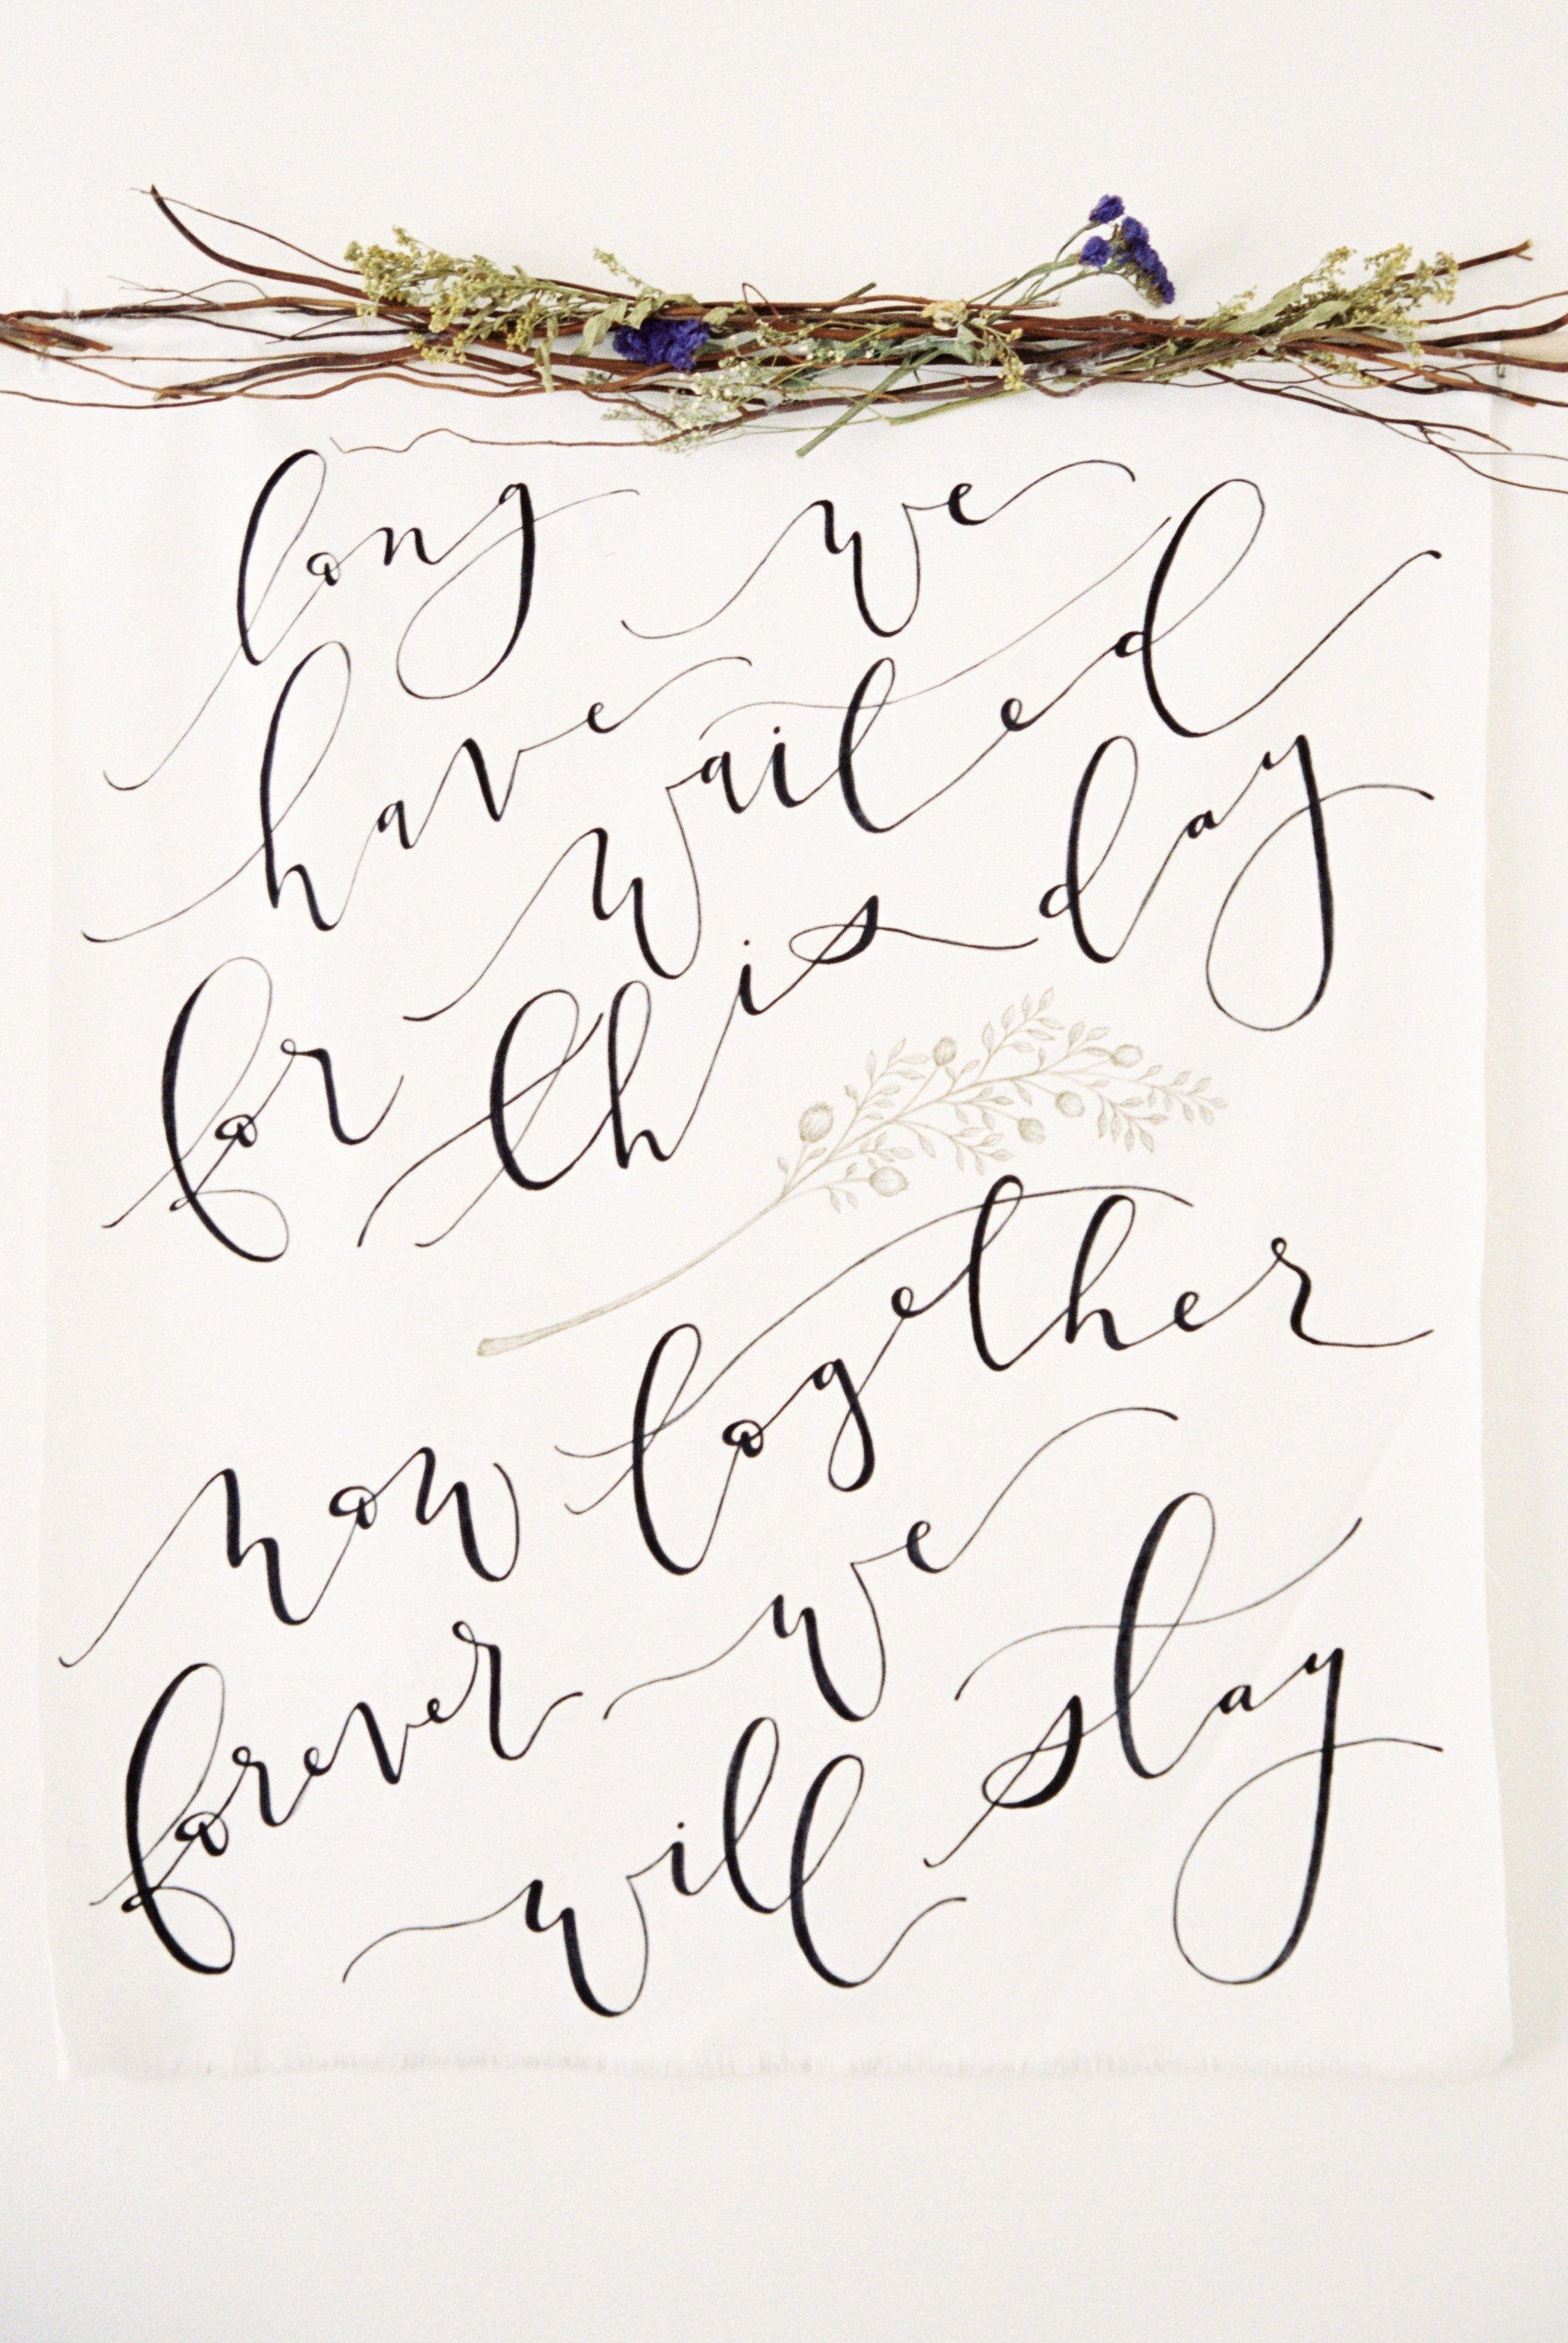 long we
have waited
for this day
now together
forever we
will stay